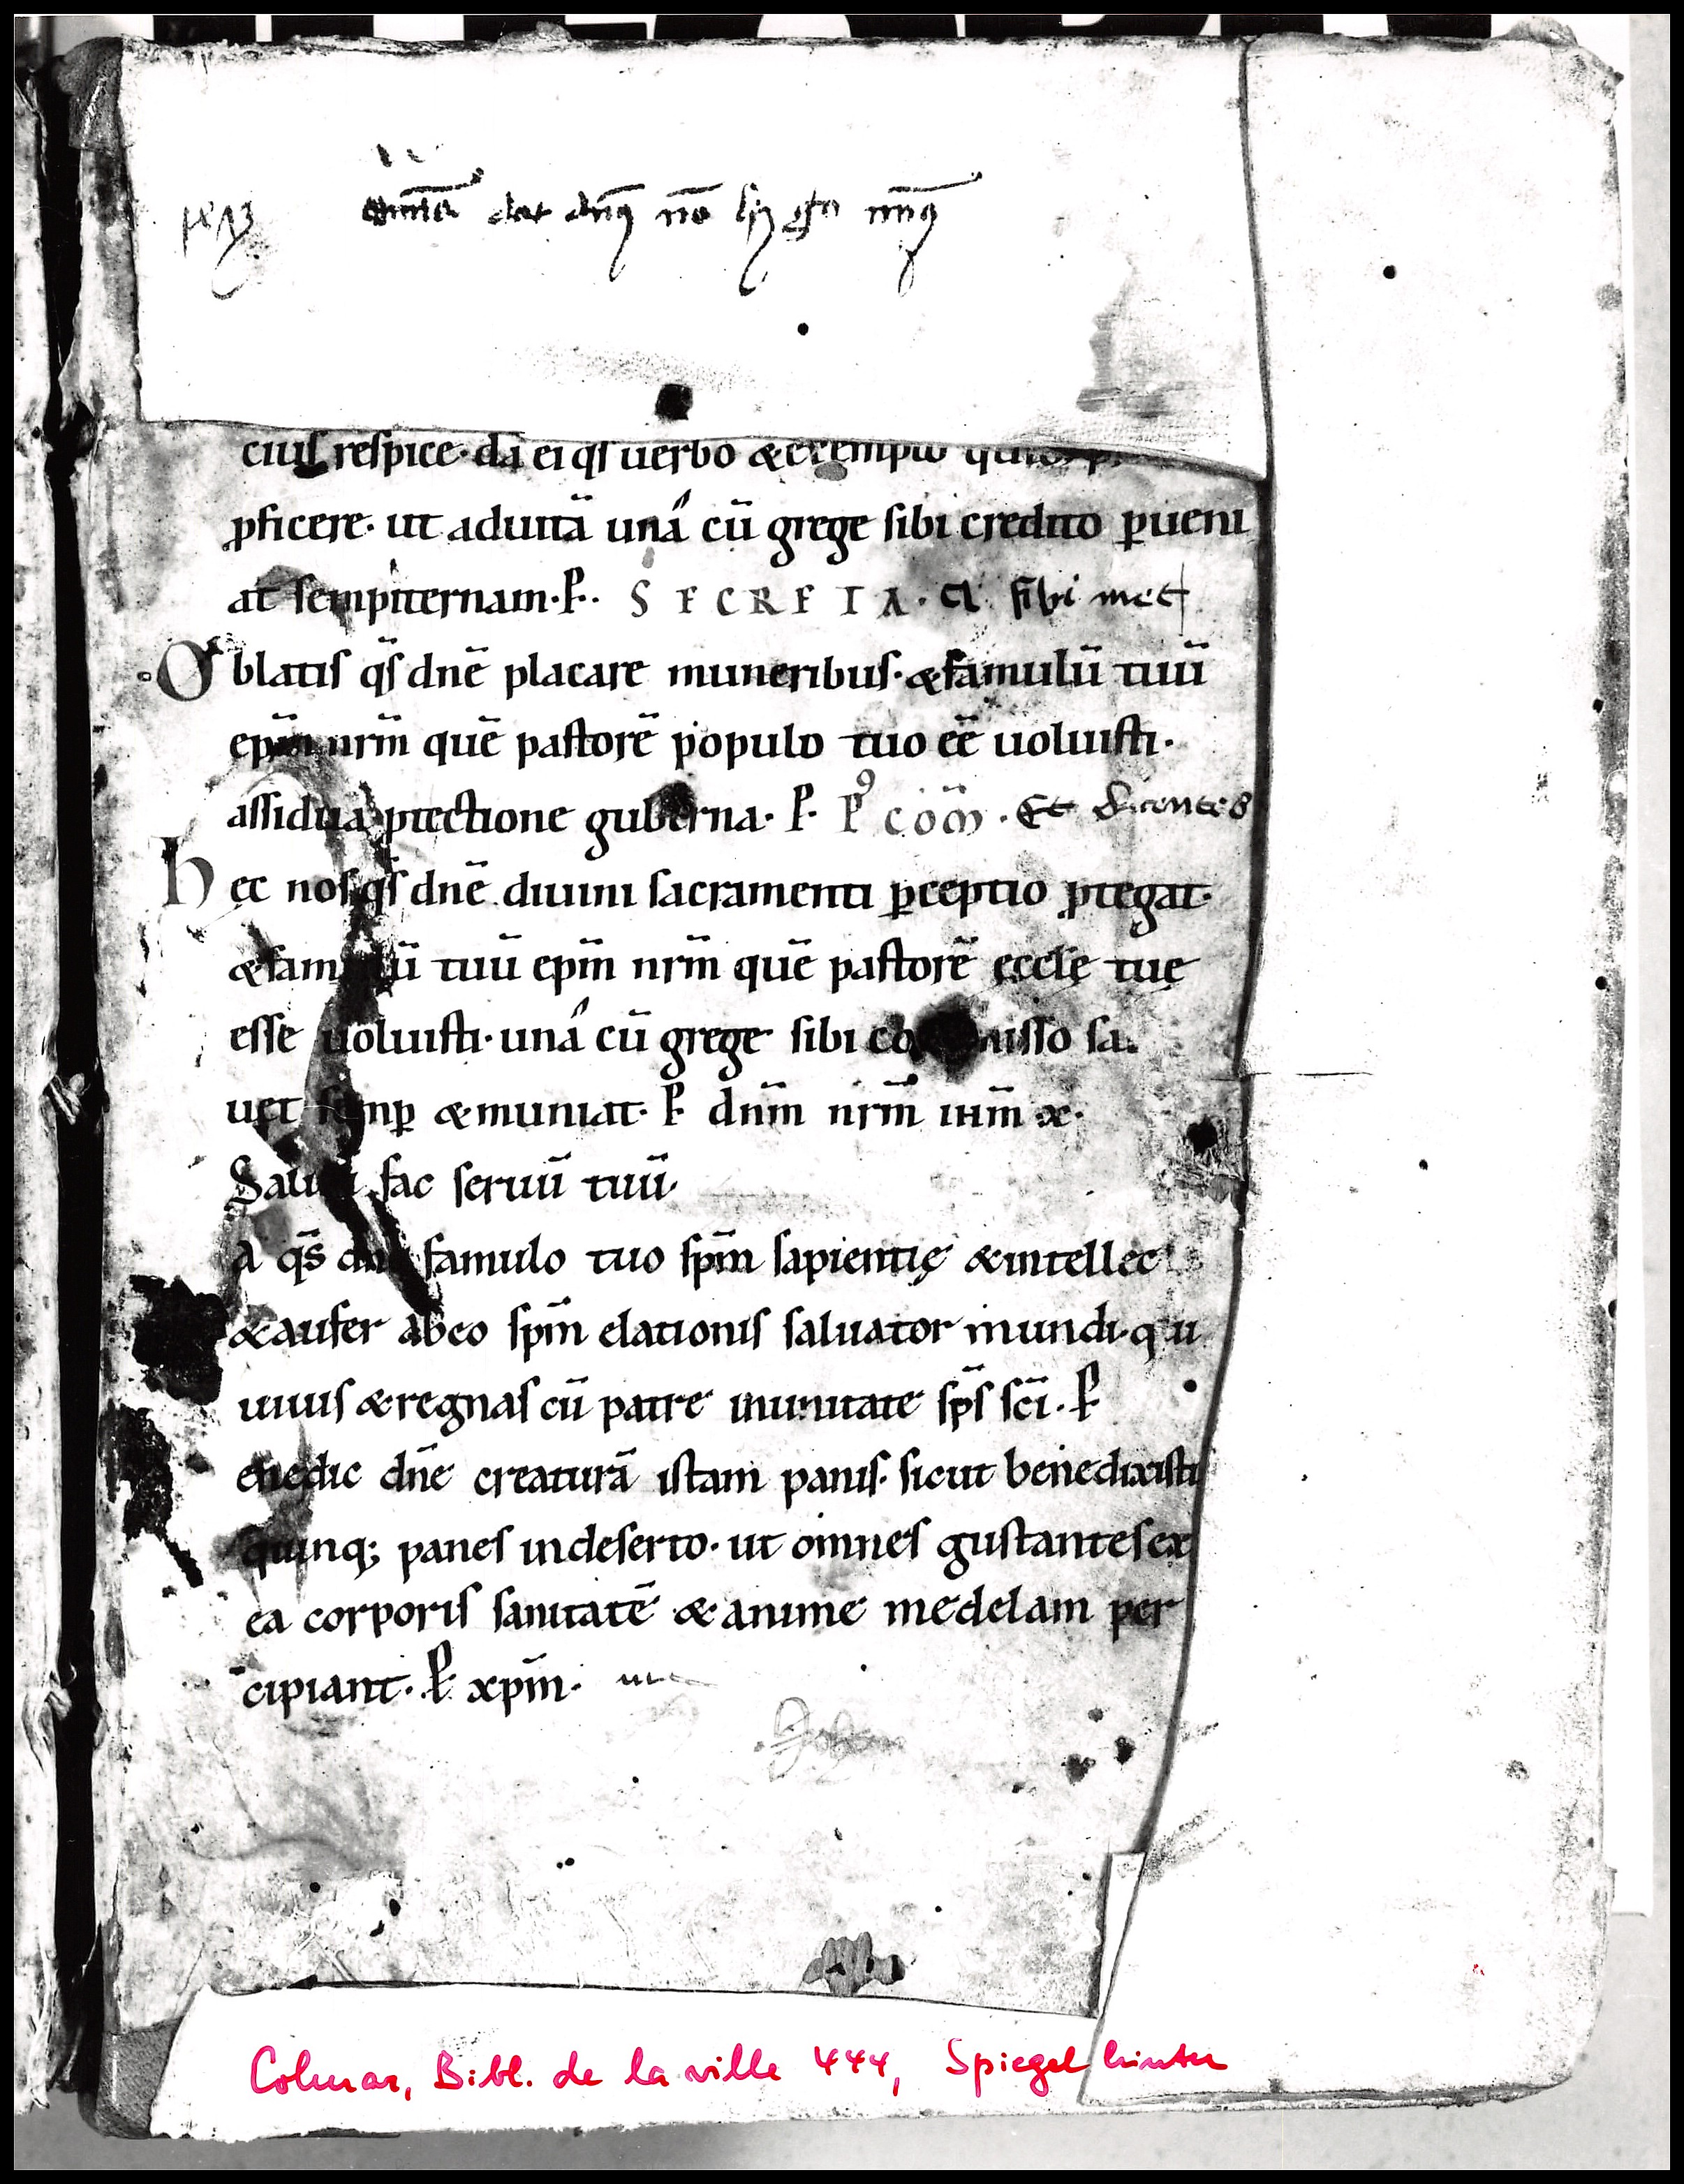 dat
cius respice· da ei qs̄ uerbo & exemplo
ꝓficere· ut aduitā unā cū grege sibi credito ꝑueni
at sempiternam·P̱· SECRETA· a sibi met
Oblatis qs̄ dn̄e placare muneribus· & famulū tuū
ep̄m nr̄m quē pastorē populo tuo eē uoluisti·
assidua ꝓtectione guberna· P̱· P̱ꝰ COM̄· Et dicentes
hęc nos qs̄ dn̄e diuini sacramenti ꝑceptio ꝓtegat·
& famulū tuū ep̄m nr̄m quē pastorē eccłę tuę
esse uoluisti· unā cū grege sibi commisso sa
uet semꝑ & muniat· P̱· dn̄m nr̄m ih̄m x·
Saluū fac seruū tuū·
a qs̄ dn̄e famulo tuo sp̄m sapientię & intellec
& aufer abeo sp̄m elationis saluator mundi· qui
uiuis & regnas cū patre inunitate sp̄s sc̄i· P̱
enedic dn̄e creaturā istam panis· sicut benedixisti
quinq; panes indeserto· ut omnes gustantes ex
ea corporis sanitatē & anime medelam per
cipiant· P̱· xp̄m·
Colmar, Bibl. de la ville 444, Spiegel hinten